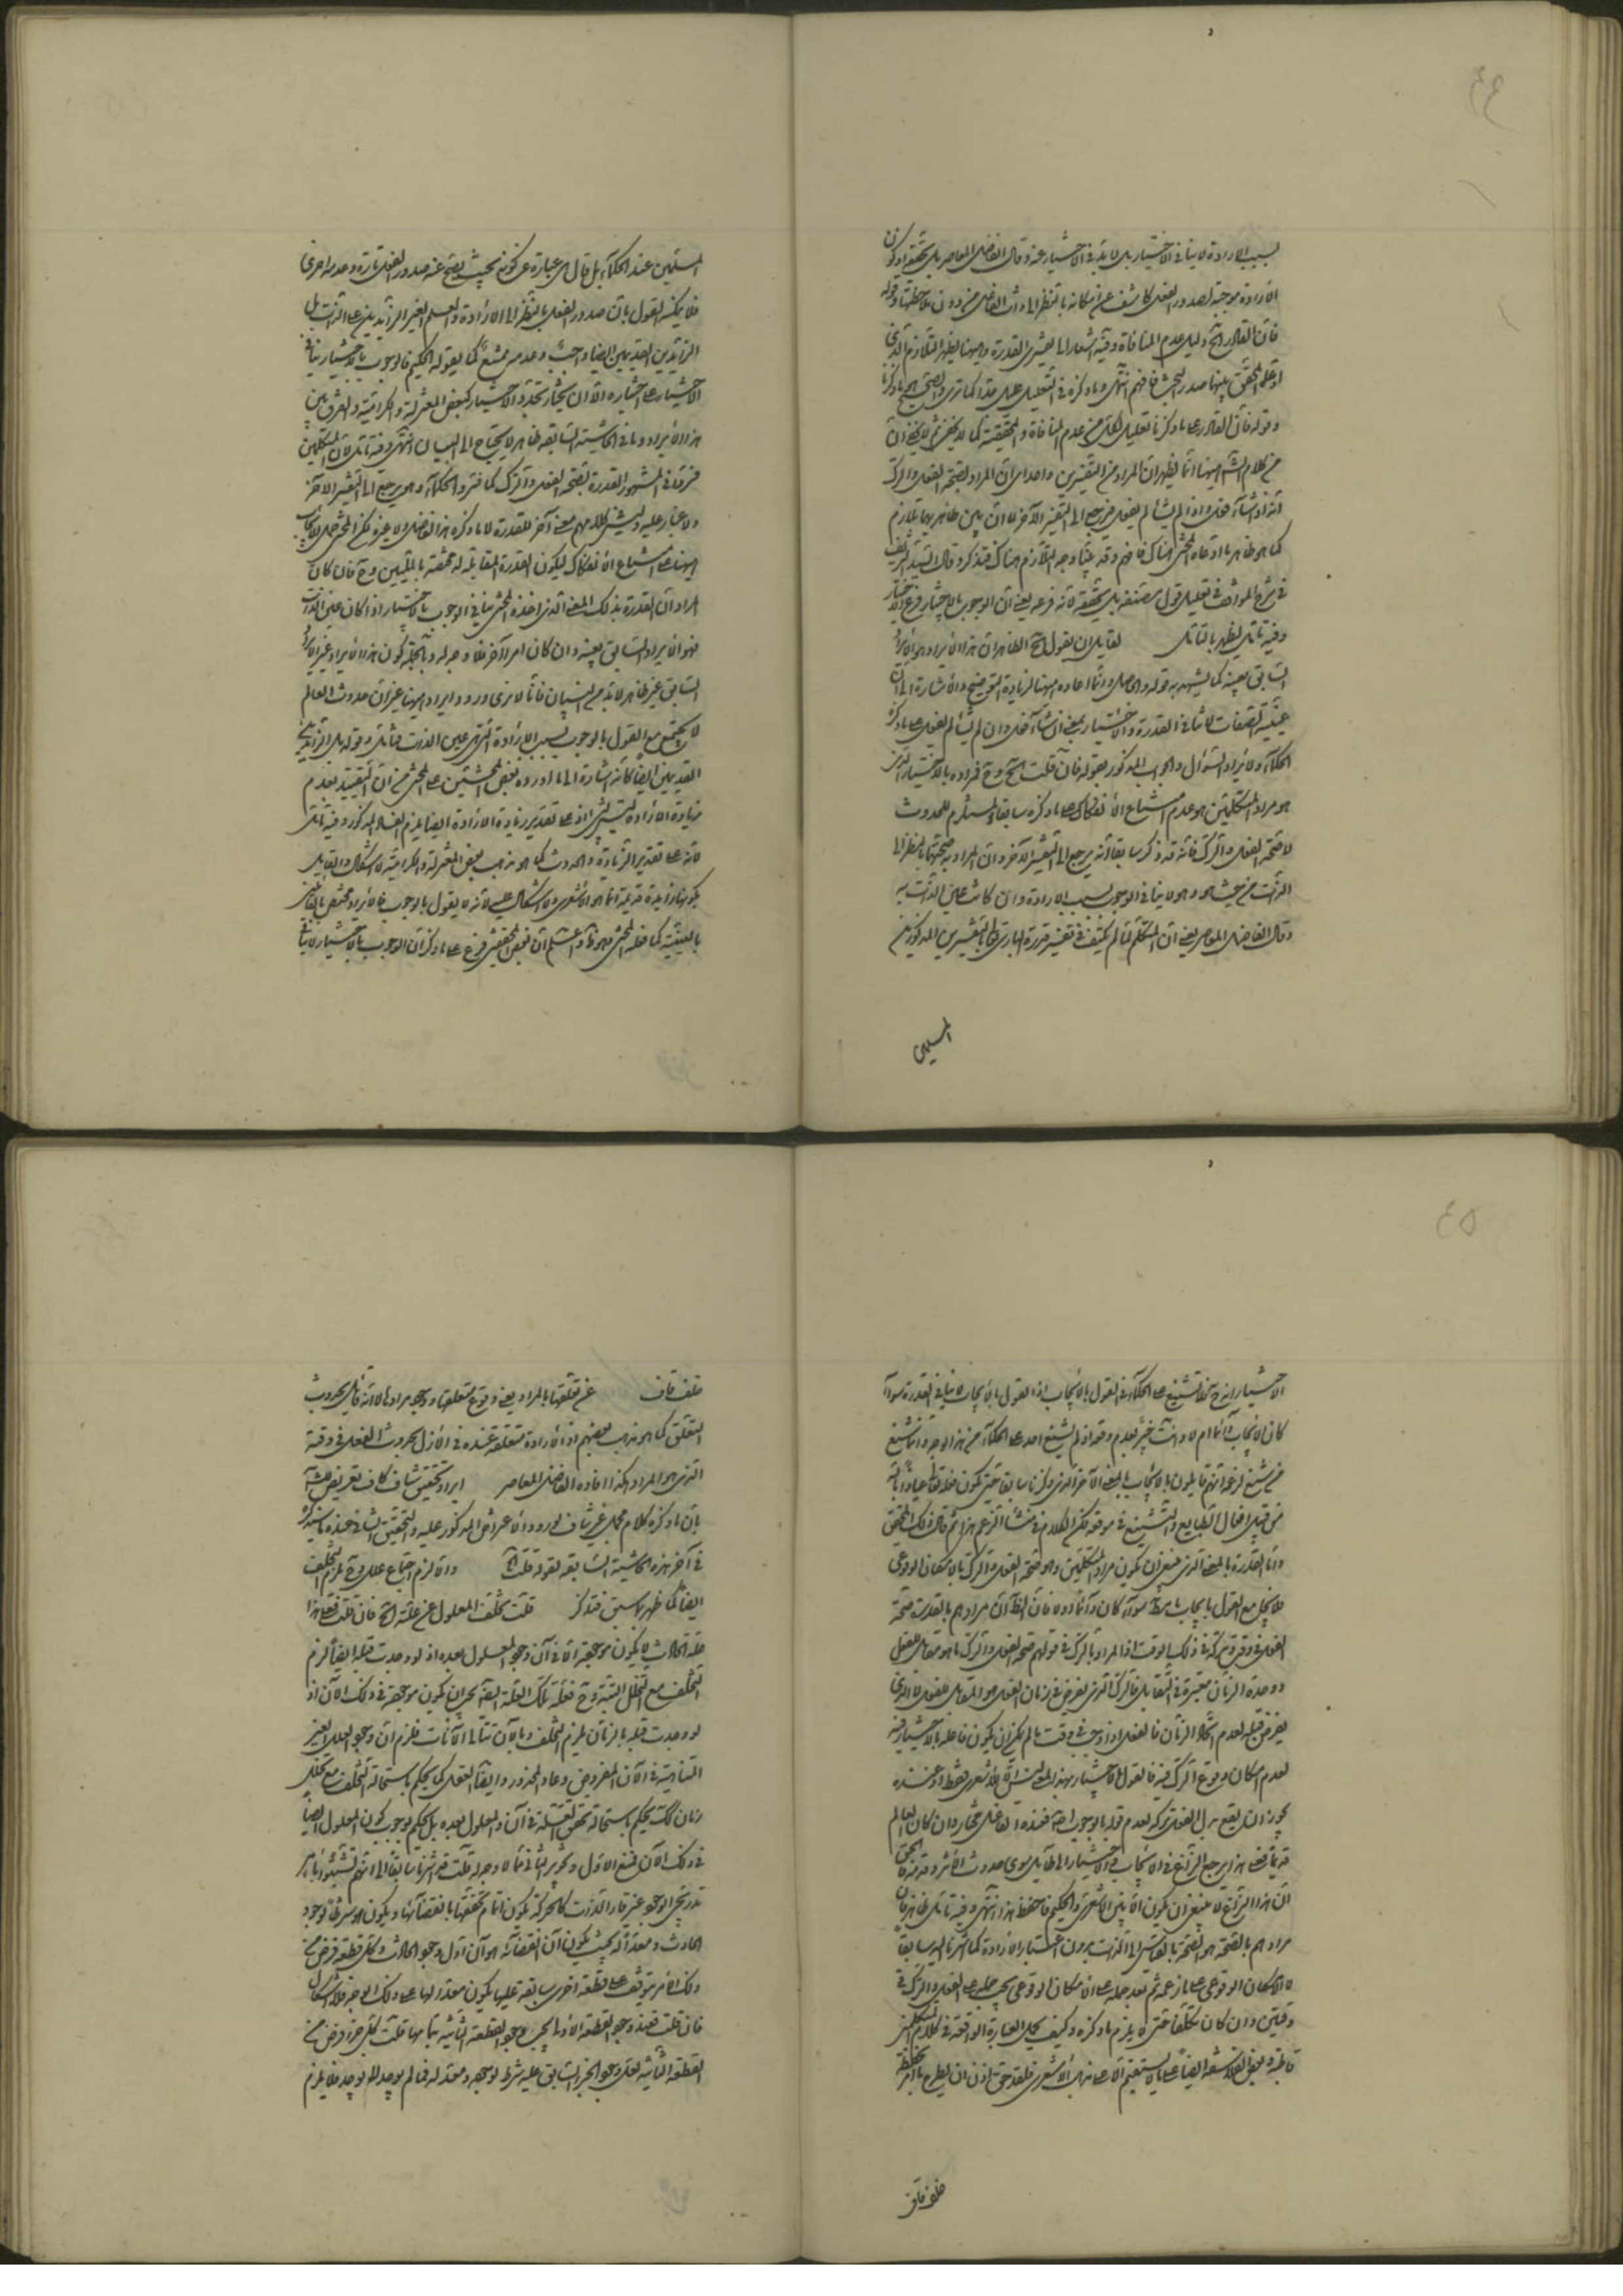 ٤٤
بسبب الارادة لا ينافى الاختيار بل لا بد فى الاختيار عنه وقال الفاضل المعاصر بل تحققه لكون
الارادة موجبة لصدور الفعل كاشف عن امكانه بالنظر الى ذات الفاعل من دون ملاحظتها وقوله
فان القادر الخ دليل عدم المنافاة وفيه اشعار الى تفسيرى القدرة وههنا يظهر التلازم الذى
ادعاه المحقق بينهما صدر البحث فافهم انتهى وما ذكره فى التعليل عليل جدا كما ترى والصحيح ما ذكرنا
وقوله فان القادر على ما ذكرنا تعليل لكل من عدم المنافاة والحقيقية كما لا يخفى ثم لا يخفى ان
من كلام الشه ههنا انما يظهر ان المراد من التفسيرين واحد اى ان المراد بصحة الفعل والترك
انه اذا شاء فعل واذا لم يشأ لم يفعل فيرجع الى التفسير الآخر لا ان بين ظاهريهما تلازم
كما هو ظاهر ما ادعاه المحشى هناك فافهم وقد بينا وجه التلازم هناك فتذكر وقال السيد الشريف
فى شرح المواقف فى تعليل قول مصنفه بل تحققه لانه فرعه يعنى ان الوجوب بالاختيار فرع الاختيار
وفيه تأمل يظهر بالتأمل لقايل ان يقول الخ الظاهر ان هذا الايراد هو الايراد
السابق بعينه كما يشهد به قوله والحاصل وانما اعاده ههنا لزيادة التوضيح والاشارة الى ان
عينية الصفات لا تنافى القدرة والاختيار بمعنى ان شاء فعل وان لم يشأ لم يفعل على ما ذكره
الحكماء ولايراد السؤال والجواب المذكور بقوله فان قلت الخ وح فمراده بالاختيار الذى
هو مراد المتكلمين هو عدم امتناع الانفكاك على ما ذكره سابقا المستلزم للحدوث
لا صحة الفعل والترك فانه قد ذكر سابقا انه يرجع الى التفسير الآخر وان المراد به صحتهما بالنظر الى
الذات من حيث هو وهو لا ينافى الوجوب بسبب الارادة وان كانت عين الذات به
وقال الفاضل المعاصر يعنى ان المتكلم لما لم يكتف فى تفسير قدرة البارى تعالى بالتفسيرين المذكورين
المسلمين
المسلمين عند الحكماء بل قال هى عبارة عن كونه بحيث يصح عنه صدور الفعل تارة وعدمه اخرى
فلا يمكنه القول بان صدور الفعل بالنظر الى الارادة والعلم الغير الزائدين على الذات بل
الزائدين القديمين ايضا واجب وعدمه ممتنع كما يقوله الحكيم فالوجوب بالاختيار ينافى
الاختيار على اختياره الا ان يختار تجدد الاختيار كبعض المعتزلة والكرامية والفرق بين
هذا الايراد وما فى الحاشية السابقه ظاهر لا يحتاج الى البيان انتهى وفيه تأمل لان المتكلمين
فرقا فى المشهور القدرة بصحة الفعل والترك كما فسرو الحكماء وهى يرجع الى التفسير الآخر
ولا غبار عليه وليس فى كلامهم معنى آخر للقدرة لا ما ذكره هذا الفاضل ولا غيره لكن المحشى حمل الايجاب
ههنا على امتناع الانفكاك ليكون القدرة المقابلة له مختصة بالمليين وح فان كان
المراد ان القدرة بذلك المعنى الذى اخذه المحشى ينافى الوجوب بالاختيار اذا كان عين الذات
فهو الايراد السابق بعينه وان كان امرا آخر فلا وجه له وبالجملة كون هذا الايراد غير الايراد
السابق غير ظاهر لا بد من البيان فانا لا نرى ورود ايراد ههنا غير ان حدوث العالم
لا يجتمع مع القول بالوجوب بسبب الارادة التى هى عين الذات فتأمل وقوله بل الزائدين
القديمين ايضا كانه اشارة الى ما اورده بعض المحشيين على المحشى من ان التقييد بعدم
زيادة الارادة ليس بشئ اذ على تقدير زيادة الارادة ايضا يلزم الفساد المذكور وفيه تأمل
لانه على تقدير الزيادة والحدوث كما هو مذهب بعض المعتزلة والكرامية لا اشكال والقايل
بكونها زايدة قديمة انما هو الاشعرى ولا اشكال عليه لانه لا يقول بالوجوب فالايراد مختص بالقايل
بالعينية كما فعله المحشى فهو ظ واعلم ان بعض المحققين فرع على ما ذكر ان الوجوب بالاختيار لا ينافى
٤٥
الاختيار انه ح لا تشنيع على الحكماء فى القول بالايجاب اذ القول بالايجاب لا ينافى القدرة سواء
كان الايجاب دائما ام لا وانت خبير بعدم وقوعه اذ لم يشنع احد على الحكماء من هذا الوجه وانما شنع
من شنع لزعم انهم قايلون بالايجاب بالمعنى الآخر الذى ذكرنا سابقا حتى يكون فعله تعالى عياذا بالله
من قبيل افعال الطبايع والتشنيع فى موقعه لكن الكلام فى منشأ الزعم هذا ثم قال ذلك المحقق
واما القدرة بالمعنى الذى ينبغى ان يكون مراد المتكلمين وهو صحة الفعل والترك بالامكان الوقوعى
فلا يجتمع مع القول بايجاب ما مر سواء كان دائما او لا فان الظ ان مرادهم بالقدرة صحة
الفعل فى وقت وتركه فى ذلك الوقت اذ المراد بالترك فى قولهم صحة الفعل والترك ما هو مقابل للفعل
ووحدة الزمان معتبرة فى التقابل فالترك الذى يفرض فى زمان الفعل هو المقابل للفعل لا الذى
يفرض قبله لعدم اتحاد الزمان فالفعل اذا وجب فى وقت ما لم يمكن ان يكون فاعله بالاختيار فيه
لعدم امكان وقوع الترك فيه فالقول بالاختيار بهذا المعنى الاشعرى فقط اذ عنده
يجوز ان يقع بدل الفعل تركه لعدم قوله بالوجوب اصلا فعنده الفاعل مختار وان كان العالم
قديما فعلى هذا يرجع النزاع فى الايجاب والاختيار الى سوى حدوث الاثر وقدمه فالحق
ان هذا النزاع لا ينبغى ان يكون الا بين الاشعرى والحكيم فاحفظ هذا انتهى وفيه تأمل ظاهر فان
مرادهم بالصحة هو الصحة بالقياس الى الذات بدون اعتبار الارادة كما اشرنا اليه سابقا
لا الامكان الوقوعى على ما زعمه ثم بعد حمله على الامكان الوقوعى يجب حمله على الفعل والترك فى
وقتين وان كان تكلفا حتى لا يلزم ما ذكره وكيف يحمل العبارة الواقعة فى كلام المتكلمين
قاطبة وبعض الفلاسفه ايضا على ما لا يستقيم الا على مذهب الاشعرى فلقد حق اذن ان يطرح
خلف قاف
خلف قاف عن تعلقها بالمراد يعنى وقوع متعلقها وهو مرادها لانه قايل بحدوث
التعلق كما هو مذهب بعضهم اذ الارادة متعلقة عنده فى الازل بحدوث الفعل فى وقته
الذى هو المراد هكذا افاده الفاضل المعاصر ايراد تحقيق شاف كاف تعريض للشه
بان ما ذكره كلام مجمل غير شاف لورود الاعتراض المذكور عليه والتحقيق الشافى عنده ما سيذكره
فى آخر هذه الحاشية السابقه بقوله قلت الخ والا لزم اجتماع علل وح يلزم التخلف
ايضا كما ظهر مما سبق فتذكر قلت تخلف المعلول عن علته الخ فان قلت فعلى هذا
علة الحادث لا يكون موجبة الا فى آن وجود المعلول بعده اذ لو وجدت قبله ايضا لزم
التخلف مع التخلل البتة وح فعلة تلك العلة ايضا يجب ان يكون موجبة فى ذلك الآن اذ
لو وجدت قبله بالزمان يلزم التخلف وبالآن تتالى الآنات فلزم ان وجود العلل الغير
المتناهية فى الآن المفروض وعاد المحذور وايضا العقل كما يحكم باستحالة التخلف مع تخلل
زمان كك يحكم باستحالة تحقق العلة فى آن والمعلول بعده بل يحكم بوجوب كون المعلول ايضا
فى ذلك الآن فمنع الاول وتجويز الثانى مما لا وجه له قلت قد اشرنا سابقا الى انهم تشبثوا بامر
تدريجى الوجود غير قار الذات كالحركة يكون اتمام تحققها بانقضائها ويكون هو شرطا لوجود
الحادث ومعدا له بحيث يكون آن انقضائه هو آن اول وجود الحادث وكل قطعه فرض من
ذلك الامر يتوقف على قطعة اخرى سابقة عليها يكون معدا لها على ذلك الوجه فلا اشكال
فان قلت فعند وجود القطعه الاولى يجب وجود القطعه الثانية بتمامها قلت كل جزء فرض من
القطعه الثانية فعلى وجود الجزء السابق عليه شرط لوجوده ومعد له فما لم يوجد لم يوجد فلا يلزم